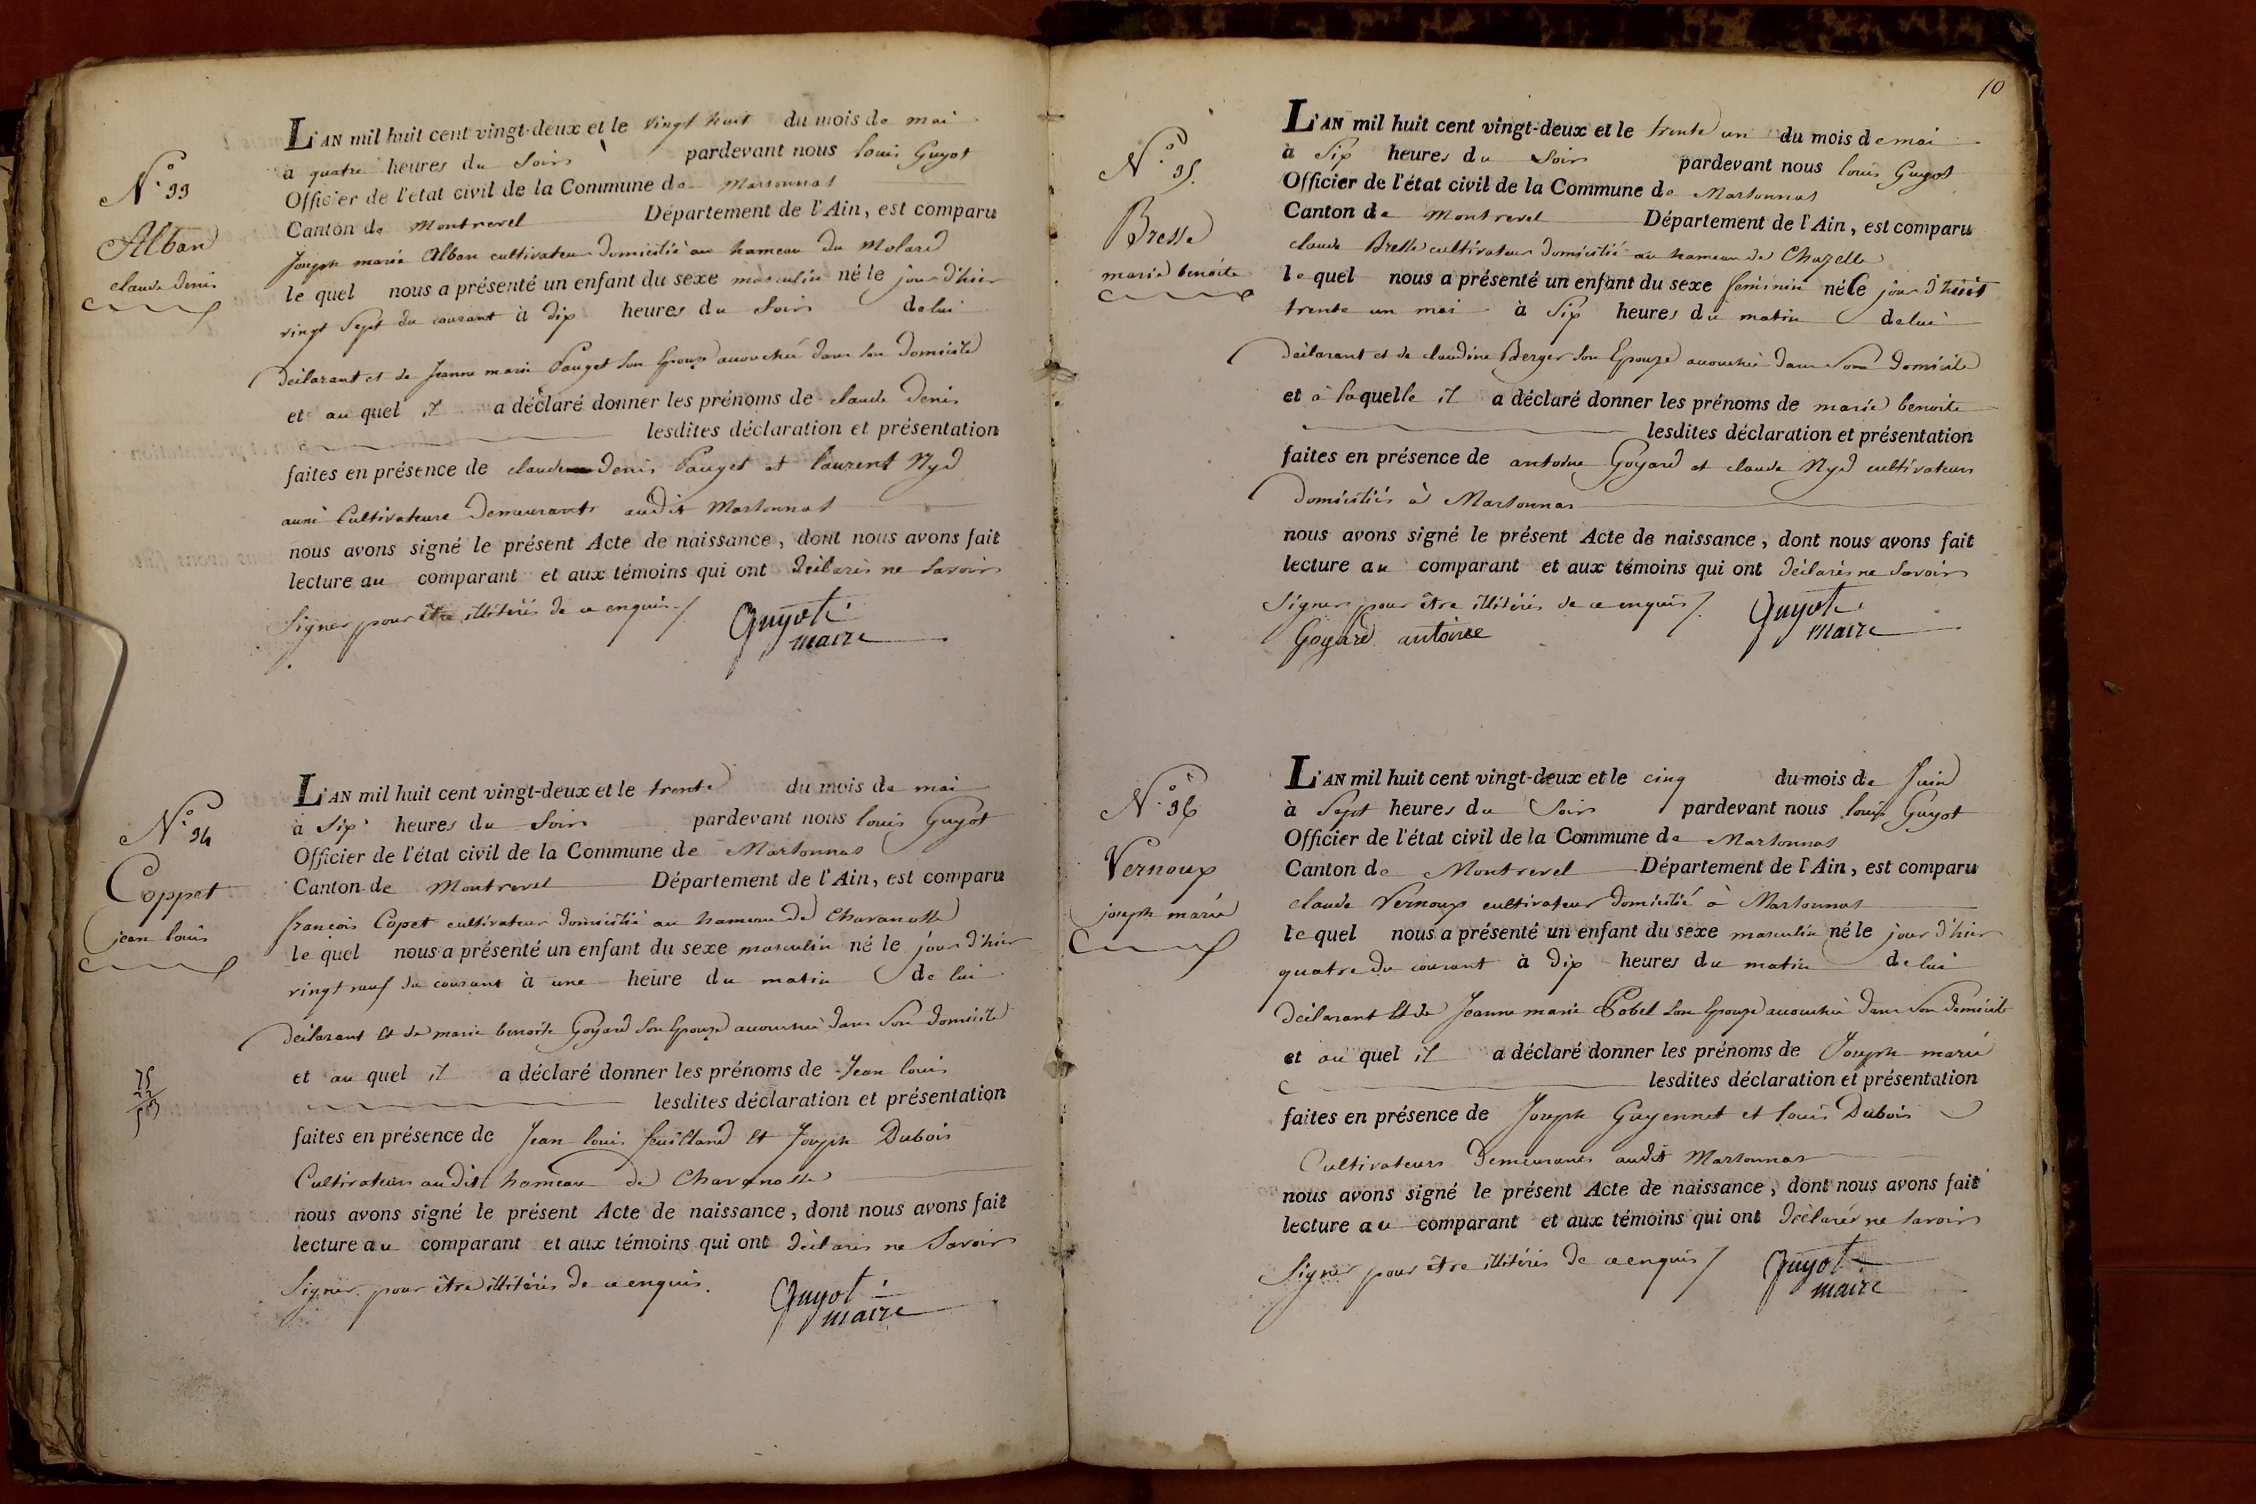 N.° 33
Alban
claude denis
L'AN mil huit cent vingt-deux et le vingt huit du mois de mai
à quatre heures du Soir pardevant nous louis Guyot
Officier de l'état civil de la Commune de Marsonnas
Canton de Montrevel Département de l'Ain, est comparu
Joseph marie Alban cultivateur domicilié au hameau du Molard
le quel nous a présenté un enfant du sexe masculin né le jour d'hier
vingt Sept du courant à dix heures du Soir de lui
déclarant et de Jeanne marie Pauget son Epouze accouchée dans son domicile
et au quel il a déclaré donner les prénoms de claude denis
lesdites déclaration et présentation
faites en présence de claude denis Pauget et laurent Nyd
aussi Cultivateurs demeurants audit Marsonnas
nous avons signé le présent Acte de naissance, dont nous avons fait
lecture au comparant et aux témoins qui ont déclarés ne Savoir
Signer pour être illitérés de ce enquis /
Guyot
maire
N.° 34
Coppet
jean louis
L'AN mil huit cent vingt-deux et le trente du mois de mai
à Six heures du Soir pardevant nous louis Guyot
Officier de l'état civil de la Commune de Marsonnas
Canton de Montrevel Département de l'Ain, est comparu
françois Copet cultivateur domicilié au hameau de Chavanosse
le quel nous a présenté un enfant du sexe masculin né le jour d'hier
vingt neuf du courant à une heure du matin de lui
déclarant et de marie benoite Goyard son Epouze accouchée dans Son domicile
et au quel il a déclaré donner les prénoms de Jean louis
lesdites déclaration et présentation
faites en présence de Jean louis feuilland et Joseph Dubois
Cultivateurs audit hameau de Chavanosse
nous avons signé le présent Acte de naissance, dont nous avons fait
lecture au comparant et aux témoins qui ont déclarés ne Savoir
Signer pour être illitérés de ce enquis.
Guyot
maire
10
N.° 35.
Bresse
marie benoite
L'AN mil huit cent vingt-deux et le trente un du mois de mai
à Six heures du Soir pardevant nous louis Guyot
Officier de l'état civil de la Commune de Marsonnas
Canton de Montrevel Département de l'Ain, est comparu
claude Bresse cultivateur domicilié au hameau de Chazelle
le quel nous a présenté un enfant du sexe feminin né le jour d'huit
trente un mai à Six heures du matin de lui
déclarant et de claudine Berger son Epouze accouchée dans Son domicile
et à laquelle il a déclaré donner les prénoms de marie benoite
lesdites déclaration et présentation
faites en présence de antoine Goyard et claude Nyd cultivateurs
domiciliés à Marsonnas
nous avons signé le présent Acte de naissance, dont nous avons fait
lecture au comparant et aux témoins qui ont déclarés ne Savoir
Signer pour être illitérés de ce enquis /.
Goyard antoine
Guyot
maire
N.° 36
Vernoux
joseph marie
L'AN mil huit cent vingt-deux et le cinq du mois de Juin
à Sept heures du Soir pardevant nous louis Guyot
Officier de l'état civil de la Commune de Marsonnas
Canton de Montrevel Département de l'Ain, est comparu
claude Vernoux cultivateur domicilié à Marsonnas
le quel nous a présenté un enfant du sexe masculin né le jour d'hier
quatre du courant à dix heures du matin de lui
déclarant et de Jeanne marie Pobel son Epouze accouchée dans Son domicile
et au quel il a déclaré donner les prénoms de Joseph marie
lesdites déclaration et présentation
faites en présence de Joseph Guyennet et louis Dubois
Cultivateurs demeurants audit Marsonnas
nous avons signé le présent Acte de naissance, dont nous avons fait
lecture au comparant et aux témoins qui ont déclarés ne Savoir
Signer pour être illitérés de ce enquis /
Guyot
maire